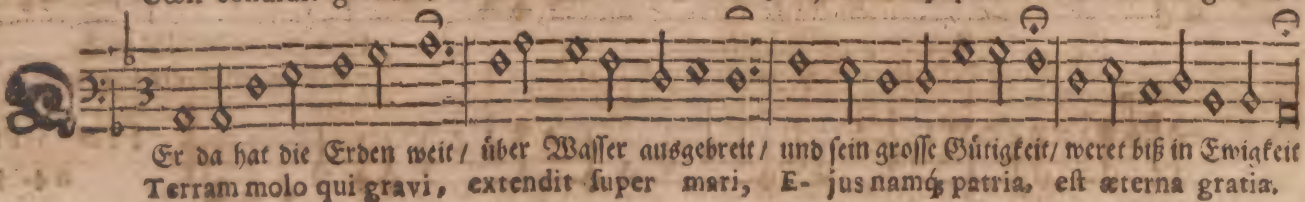 3
Er da hat die Erden weit / über Wasser ausgebreit / und sein grosse Gütigkeit / weret biß in Ewigkeit
Terram molo qui gravi, extendit super mari, E- jus namq́; patria, est æterna gratia.